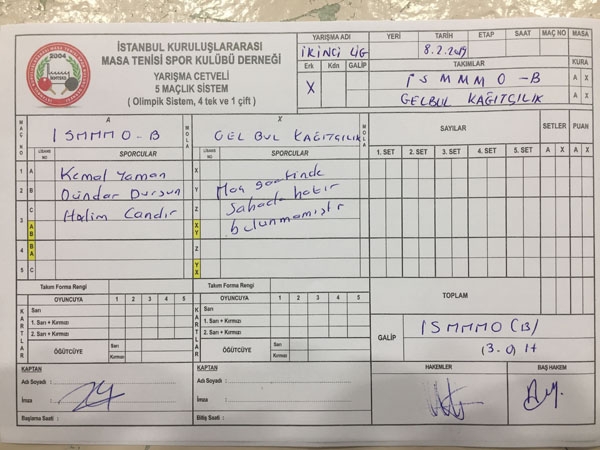 İSTANBUL KURULUŞLARARASI
MASA TENİSİ SPOR KULÜBÜ DERNEĞİ
YARIŞMA CETVELİ
5 MAÇLIK SİSTEM
( Olimpik Sistem, 4 tek ve 1 çift )
2004
YARIŞMA ADI YERİ TARİH ETAP SAAT MAÇ NO MASA
İKİNCİ LİG 8.2.2019
Erk Kdn GALİP TAKIMLAR KURA
X İSMMMO-B A X
GELBUL KAĞITÇILIK A X
MAÇ NO A MOLA X MOLA SAYILAR SETLER PUAN
ISMMMO-B GELBUL KAĞITÇILIK
LİSANS NO SPORCULAR LİSANS NO SPORCULAR 1. SET 2. SET 3. SET 4. SET 5. SET A X A X
1 A Kemal Yaman X Maç saatinde
2 B Dündar Dursun Y Sahada hazır
3 C Halim Candır Z bulunmamıştır
AB XY
4 BA Z
5 C YX
Takım Forma Rengi Takım Forma Rengi TOPLAM
KARTLAR OYUNCUYA 1 2 3 4 5 KARTLAR OYUNCUYA 1 2 3 4 5
Sarı Sarı
1. Sarı + Kırmızı 1. Sarı + Kırmızı
2. Sarı + Kırmızı 2. Sarı + Kırmızı
GALİP ISMMMO (B)
(3-0) H
ÖĞÜTCÜYE Sarı ÖĞÜTCÜYE Sarı
Kırmızı Kırmızı
KAPTAN KAPTAN HAKEMLER BAŞ HAKEM
Adı Soyadı : Adı Soyadı :
İmza : İmza :
Başlama Saati : Bitiş Saati :